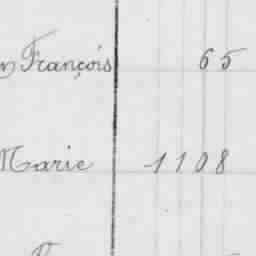 François 65
Marie 1108